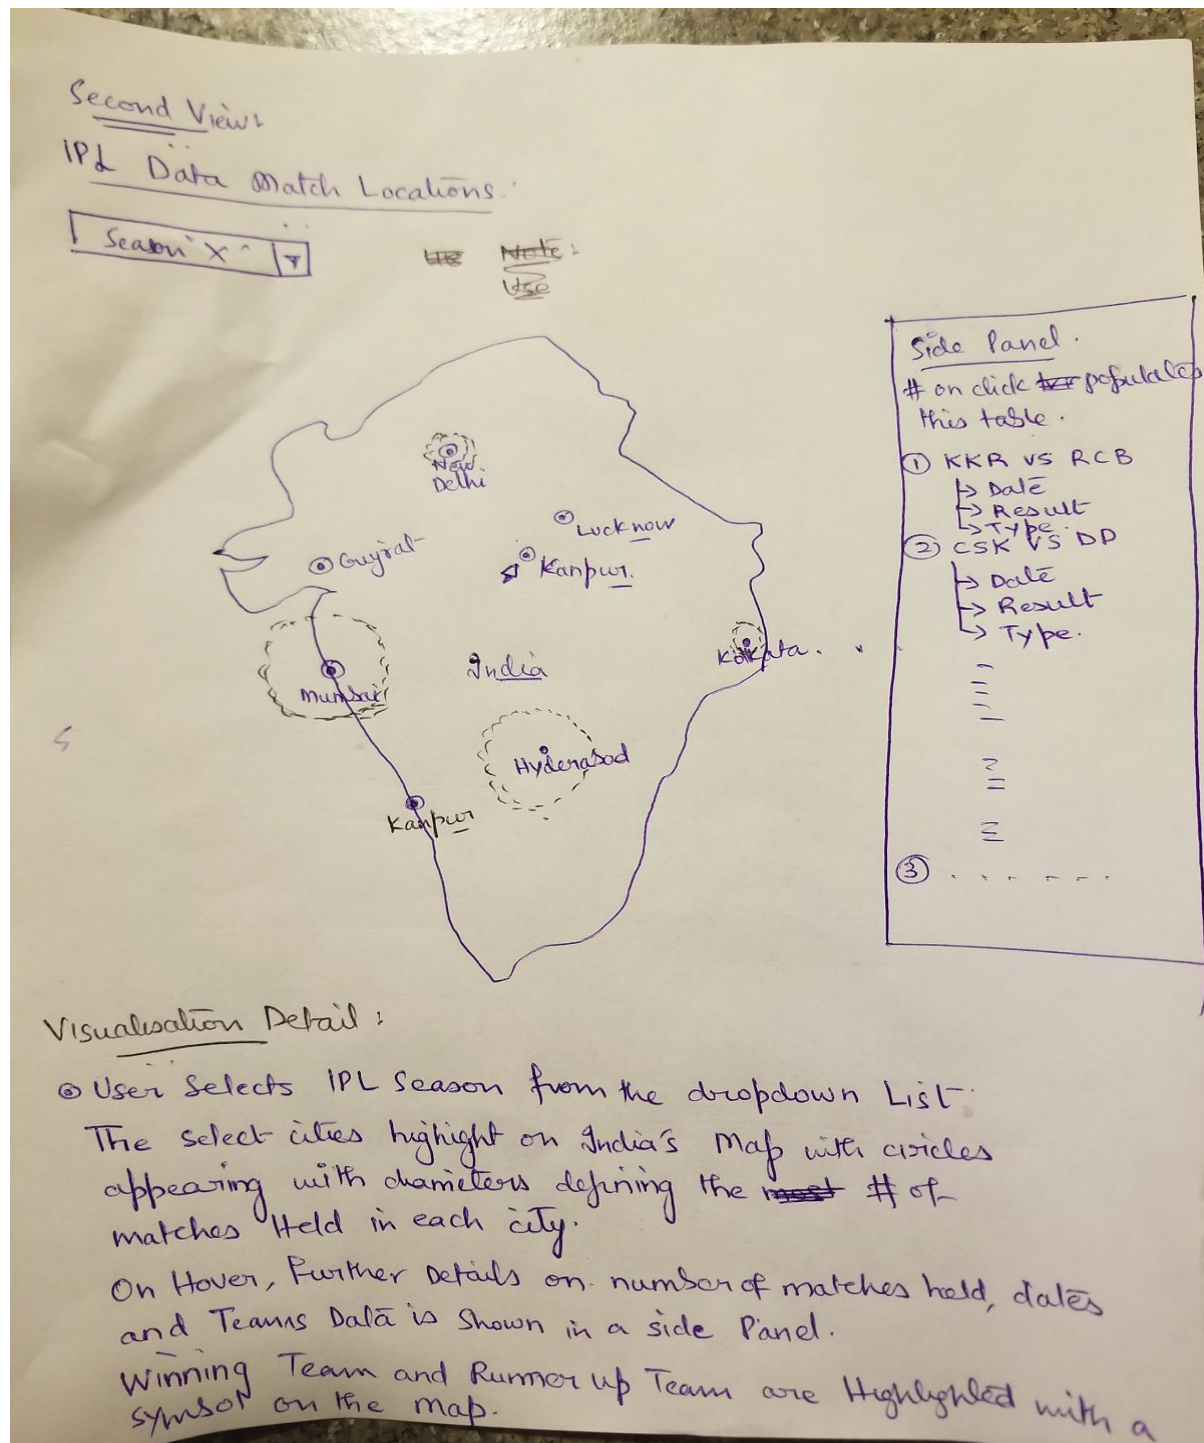 Second View:
IPL Data Match Locations.
Season X
Note:
Use
New
Delhi
Lucknow
Gujrat
Kanpur.
Kolkata.
India
Mumbai
Hyderabad
Kanpur
Side Panel.
# on click populates
this table.
① KKR VS RCB
↳ Date
↳ Result
↳ Type.
② CSK VS DD
↳ Date
↳ Result
↳ Type.
③ . . . . . .
Visualisation Detail:
User Selects IPL Season from the dropdown List.
The select cities highight on India's Map with circles
appearing with diameters defining the most # of
matches Held in each city.
On Hover, Further Details on number of matches held, dates
and Teams Data is Shown in a side Panel.
Winning Team and Runner up Team are Highlighted with a
symbol on the map.